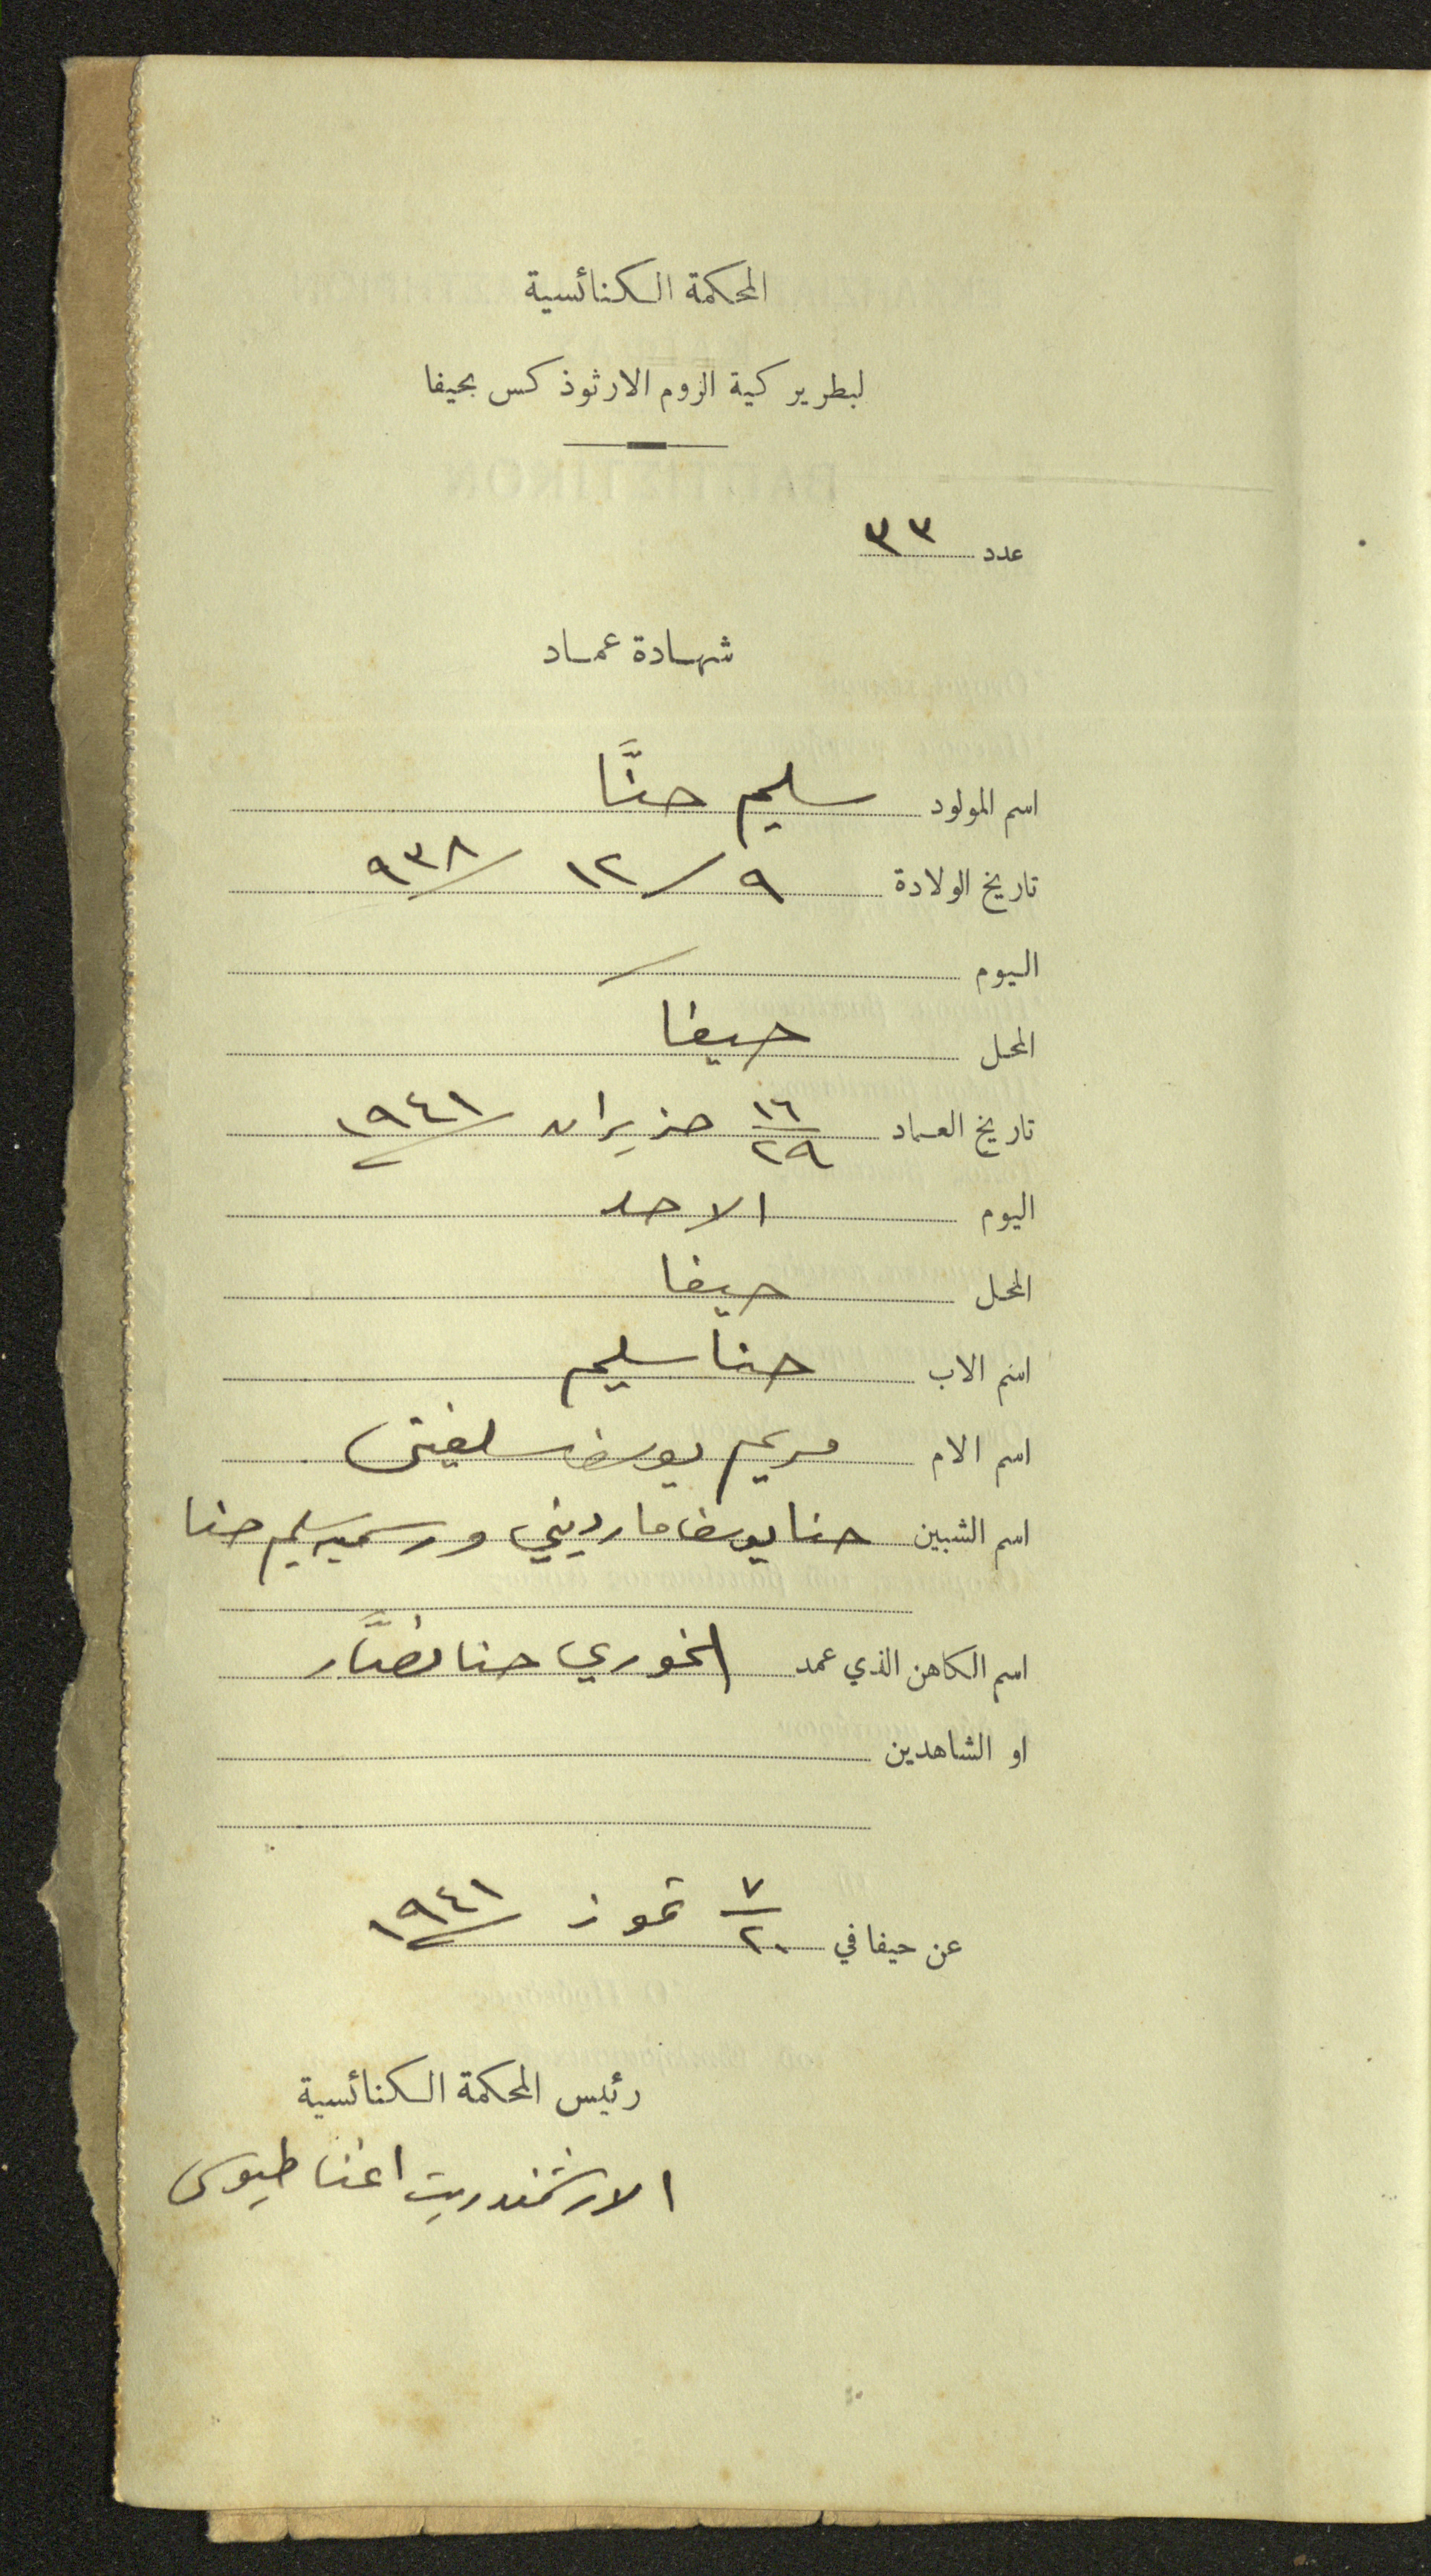 المحكمة الكنائسية
لبطريركية الروم الارثوذكس بحيفا
عدد ٣٣
شهادة عماد
اسم المولود سليم حنَّا
تاريخ الولادة ٩/ ١٢ /٩٣٨
اليوم /
المحل حيفا
تاريخ العماد ١٦/٢٩ حزيران /١٩٤١
اليوم الاحد
المحل حيفا
اسم الاب حنا سليم
اسم الام مريم يوسف سلفيتي
اسم الشبين حنا يوسف مارديني ورسميه سليم حنا
اسم الكاهن الذي عمد الخوري حنا نصَّار
او الشاهدين
عن حيفا في ٧/٢٠ تموز /١٩٤١
رئيس المحكمة الكنائسية
الارشمندريت اغناطيوس